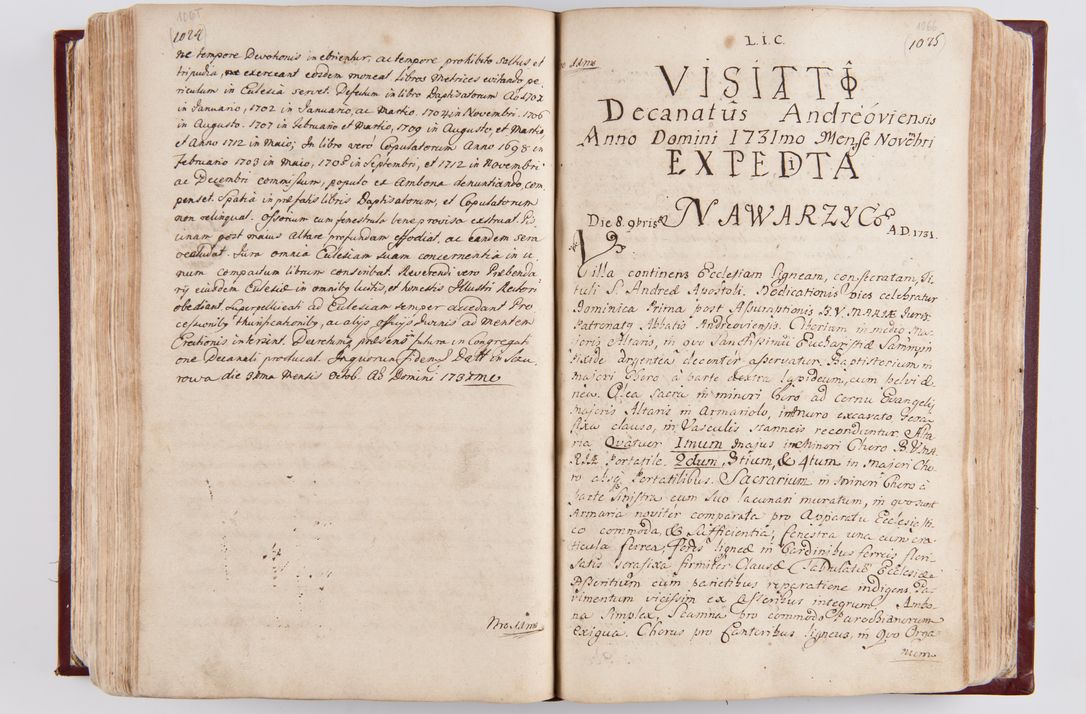 1065
(1024
ne tempore Devotionis inebrientur, ac tempore prohibito saltus et
tripudia, ne exerceant eosdem moneat Libros Metrices evitando pe
riculum in Eclesia servet. Defectum in libro Baptisatorum Ao 1701
in Januario, 1702 in Januario, ac Martio. 1704 in Novembri. 1706
in Augusto. 1707 in Februario et Martio, 1709 in Augusto, et Martio
et Anno 1712 in Maio; In libro vero Copulatorum Anno 1698 in
Februario 1703 in Maio, 1708 in Septembri, et 1712 in Novembri
ac Decembri commissum, populo ex Ambona denuntiando com
penset. Spatia in præfatis libris Baptisatorum, et Copulatorum
non relinquat. Ossorium cum fenestrula bene provisa exstruat. Pis
cinam post maius Altare profundam effodiat, ac eandem sera
occludat. Jura omnia Eclesiam suam concernentia in u
num compactum librum conscribat. Reverendi vero Præbenda
rij eiusdem Eclesiæ in omnibq licitis, et honestis Illustri Rectori
obediant. Superpelliceati ad Eclesiam semper accedant Pro
cessionibq thurificationibq, ac alijs officijs Divinis ad mentem
Erectionis intersint. Decretum præsens futura in Congregati
one Decanali producat. In quorum fidem Datt in Scu
rowa die 31ma Mensis Octob. Ao Domini 1731mo
Nro 11mo
1066
(1025
L. I. C.
Nro 11mo
VISITATTÔ
Decanatûs Andreóviensis
Anno Domini 1731mo Mense Novẽbri
EXPEDITA
Die 8. 9bris NAWARZYCE
A.D. 1731.
Villa continens Ecclesiam ligneam, consecratam, Ti
tuli S. Andreæ Apostoli. Dedicationis Dies celebratur
Dominica Prima post Assumptionis B.V. MARIÆ Juris
Patronatq Abbatis Andreoviensis. Ciborium in medio Ma
joris Altaris, in quo Sanctissimũ Eucharistiæ Sacramm in
Pixide argentea decenter asservatur. Baptisterium in
majori Choro à parte dextra lapideum, cum pelvi æ
nea. Olea sacra in minori Choro ad cornu Evangelij
majoris Altaris in Armariolo, in muro excavato sera
fixa clauso, in Vasculis stanneis reconduntur. Alta
ria Quatuor 1mum majus in Minori Choro B.V. MA
RIÆ Portatile. 2dum, 3tium, & 4tum in majori Cho
ro absq Portatilibus. Sacrarium in minori Choro à
parte sinistra cum suo lacunari muratum, in quo sunt
Armaria noviter comparata pro Apparatu Ecclesiasti
co commoda, & sufficientia, fenestra una cum cra
ticula ferrea, Fores ligneæ in Cardinibus ferreis
satis sera fixa firmiter Clausæ (Tabulatũ Ecclesiæ
cum parietibus reparatione indigens, Pa
vimentum vicissim ex asseribus integrum Ambo
na simplex, Scamna pro commodo Parochianorum
exigua. Chorus pro Cantoribus ligneus, in quo Orga
num